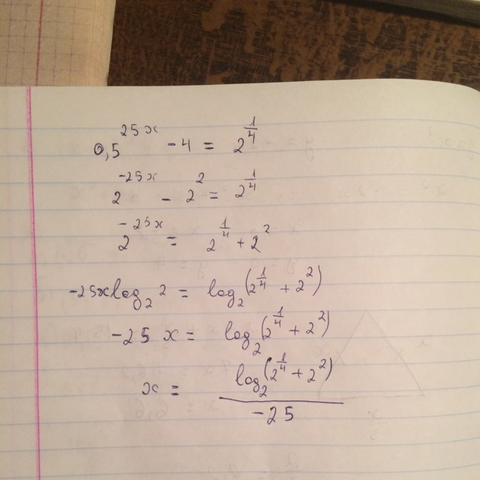 0,5^{25x} - 4 = 2^{\frac{1}{4}}
2^{-25x} - 2^{2} = 2^{\frac{1}{4}}
2^{-25x} = 2^{\frac{1}{4}} + 2^{2}
-25x log_{2} 2 = log_{2}(2^{\frac{1}{4}} + 2^{2})
-25x = log_{2}(2^{\frac{1}{4}} + 2^{2})
x = \frac{log_{2}(2^{\frac{1}{4}} + 2^{2})}{-25}